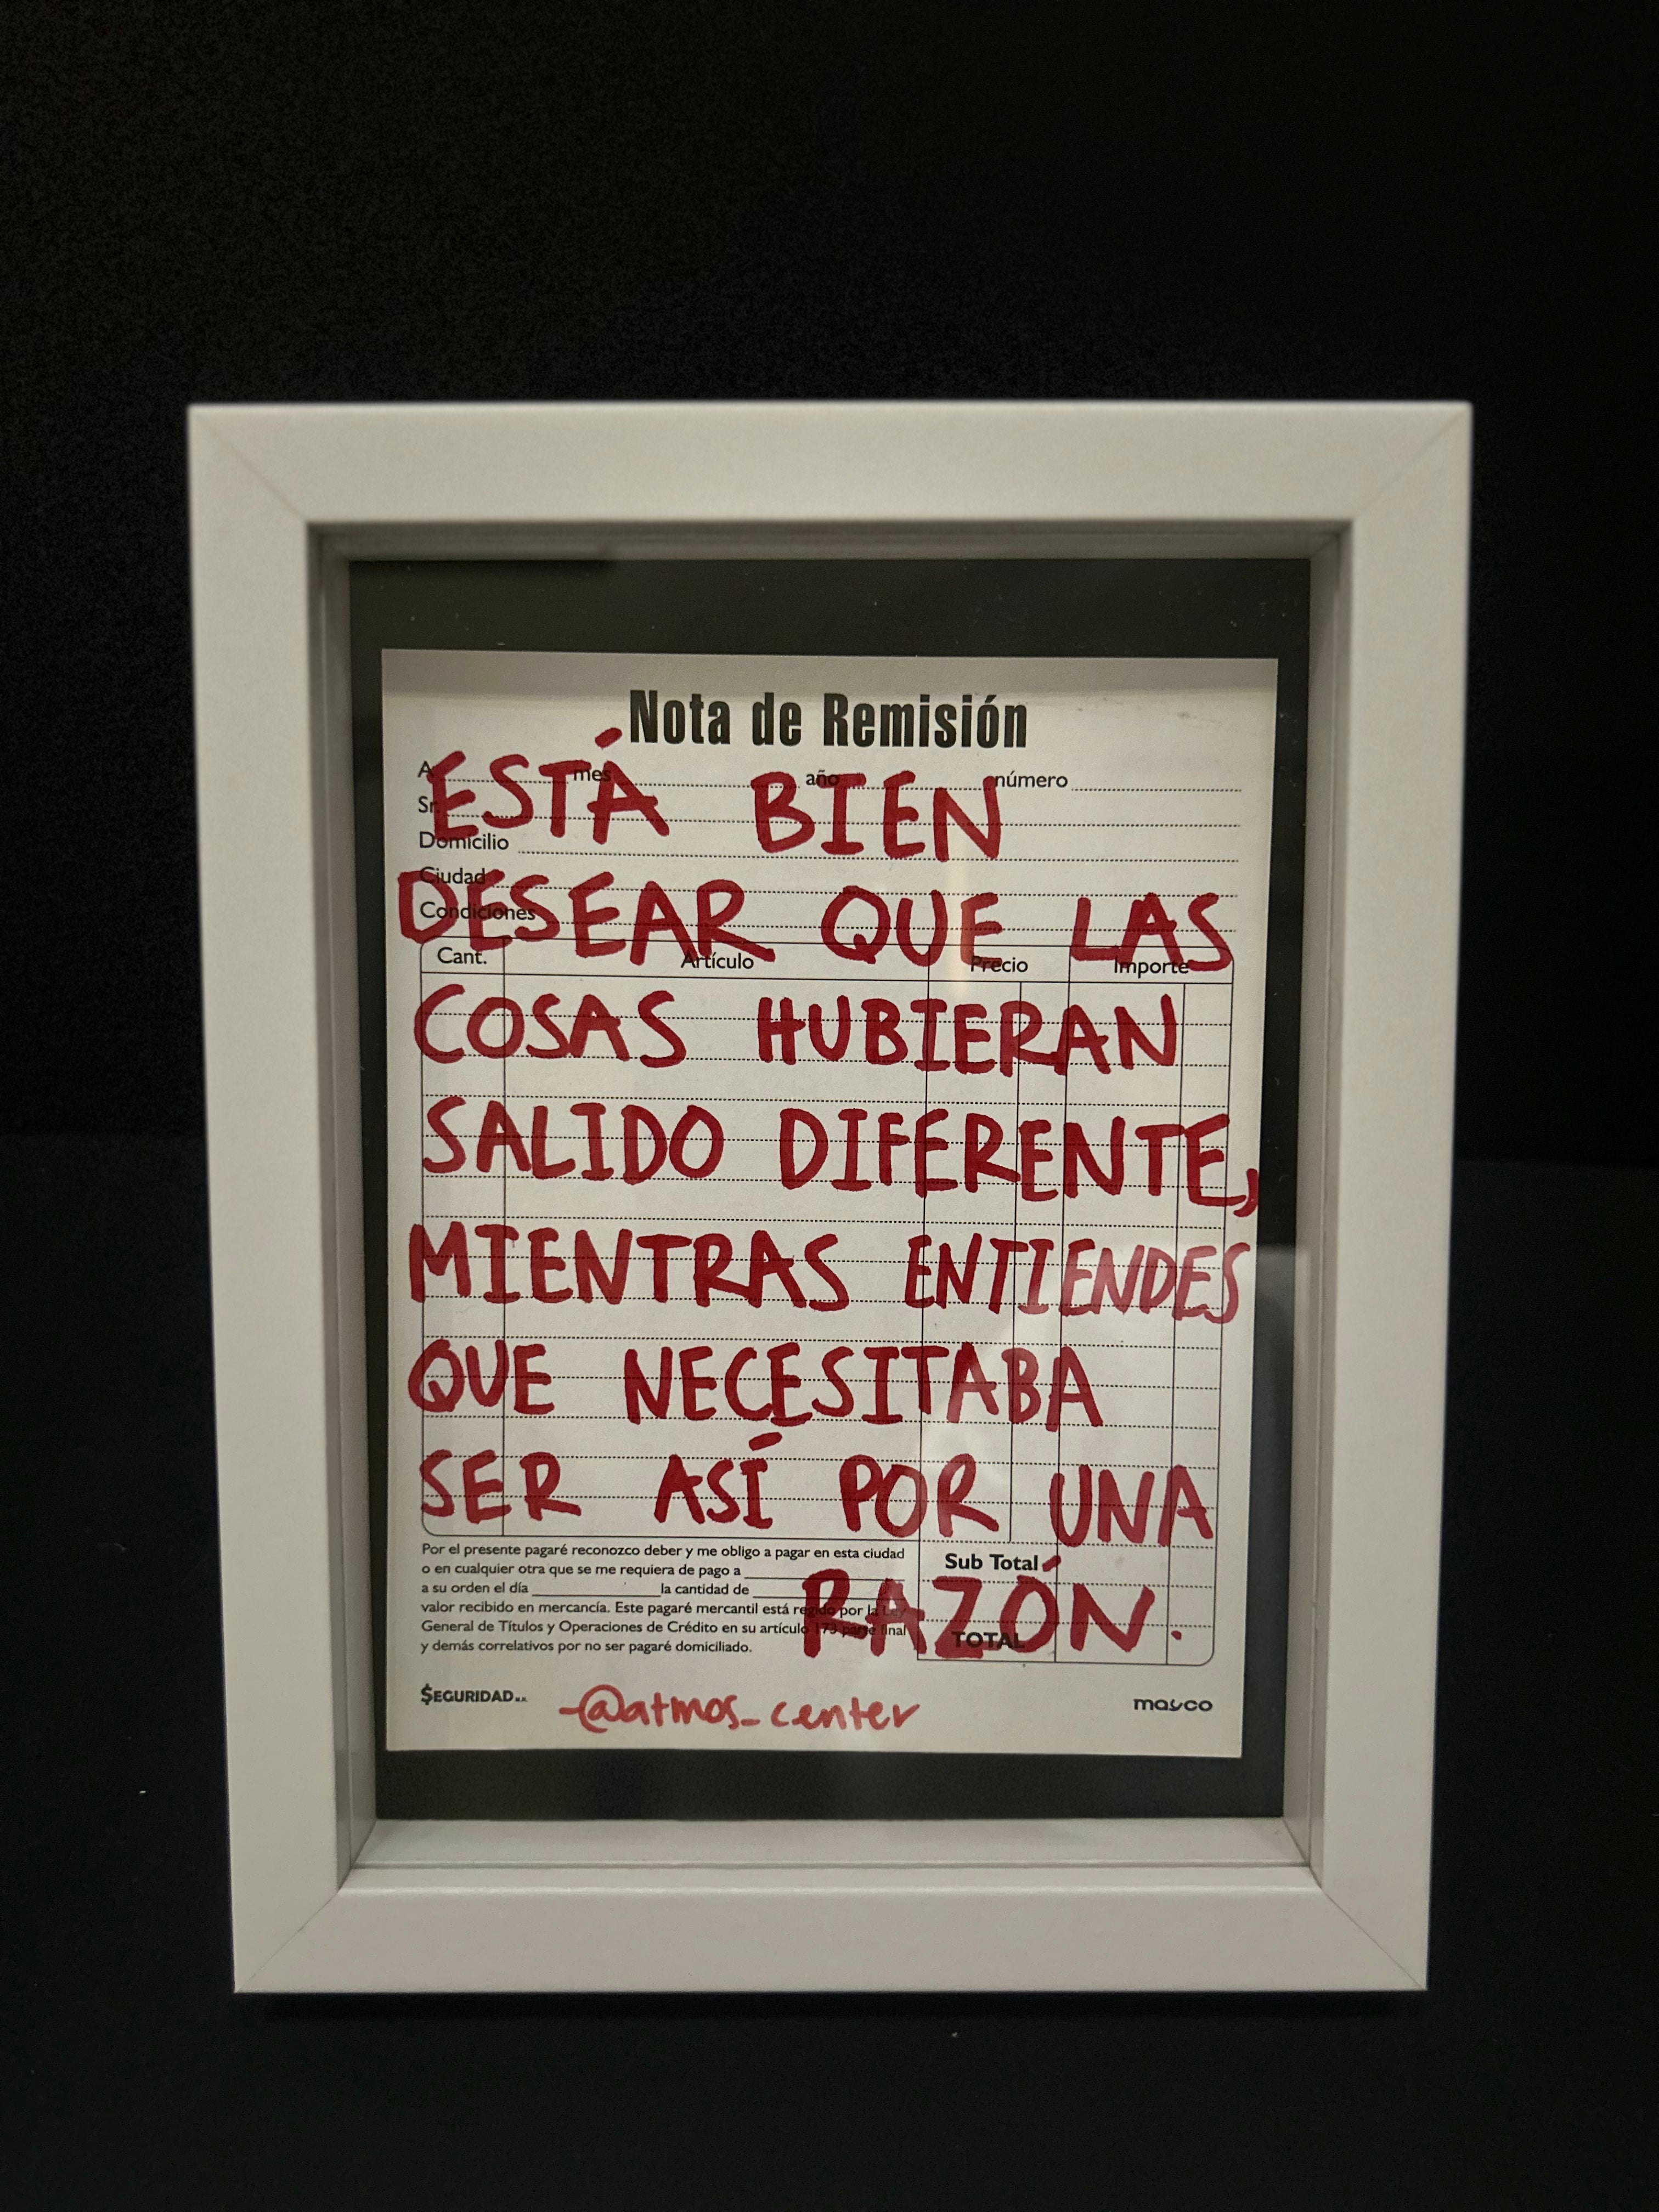 Nota de Remisión
A mes año número
Sr.
Domicilio
Ciudad
Condiciones
ESTÁ BIEN
DESEAR QUE LAS
Cant. Artículo Precio Importe
COSAS HUBIERAN
SALIDO DIFERENTE,
MIENTRAS ENTIENDES
QUE NECESITABA
SER ASÍ POR UNA
RAZÓN.
Por el presente pagaré reconozco deber y me obligo a pagar en esta ciudad
o en cualquier otra que se me requiera de pago a
a su orden el día la cantidad de
valor recibido en mercancía. Este pagaré mercantil está regido por la Ley
General de Titulos y Operaciones de Crédito en su artículo 173 parte final
y demás correlativos por no ser pagaré domiciliado.
Sub Total
TOTAL
$EGURIDAD M.R.
-@atmos_center
masco